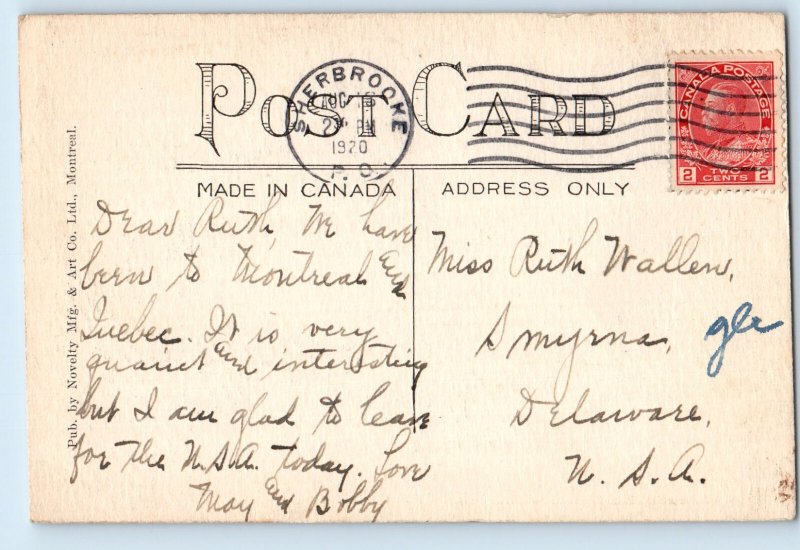 Post Card
SHERBROOKE
PM
1920
P.O.
CANADA POSTAGE
2 TWO CENTS 2
MADE IN CANADA
ADDRESS ONLY
Pub. by Novelty Mfg. & Art Co. Ltd., Montreal.
Dear Ruth, We have
been to Montreal and
Quebec. It is very
quaint and interesting
but I am glad to leave
for the U.S.A. today. Love
May and Bobby
Miss Ruth Wallen,
Smyrna,
Delaware,
U. S. A.